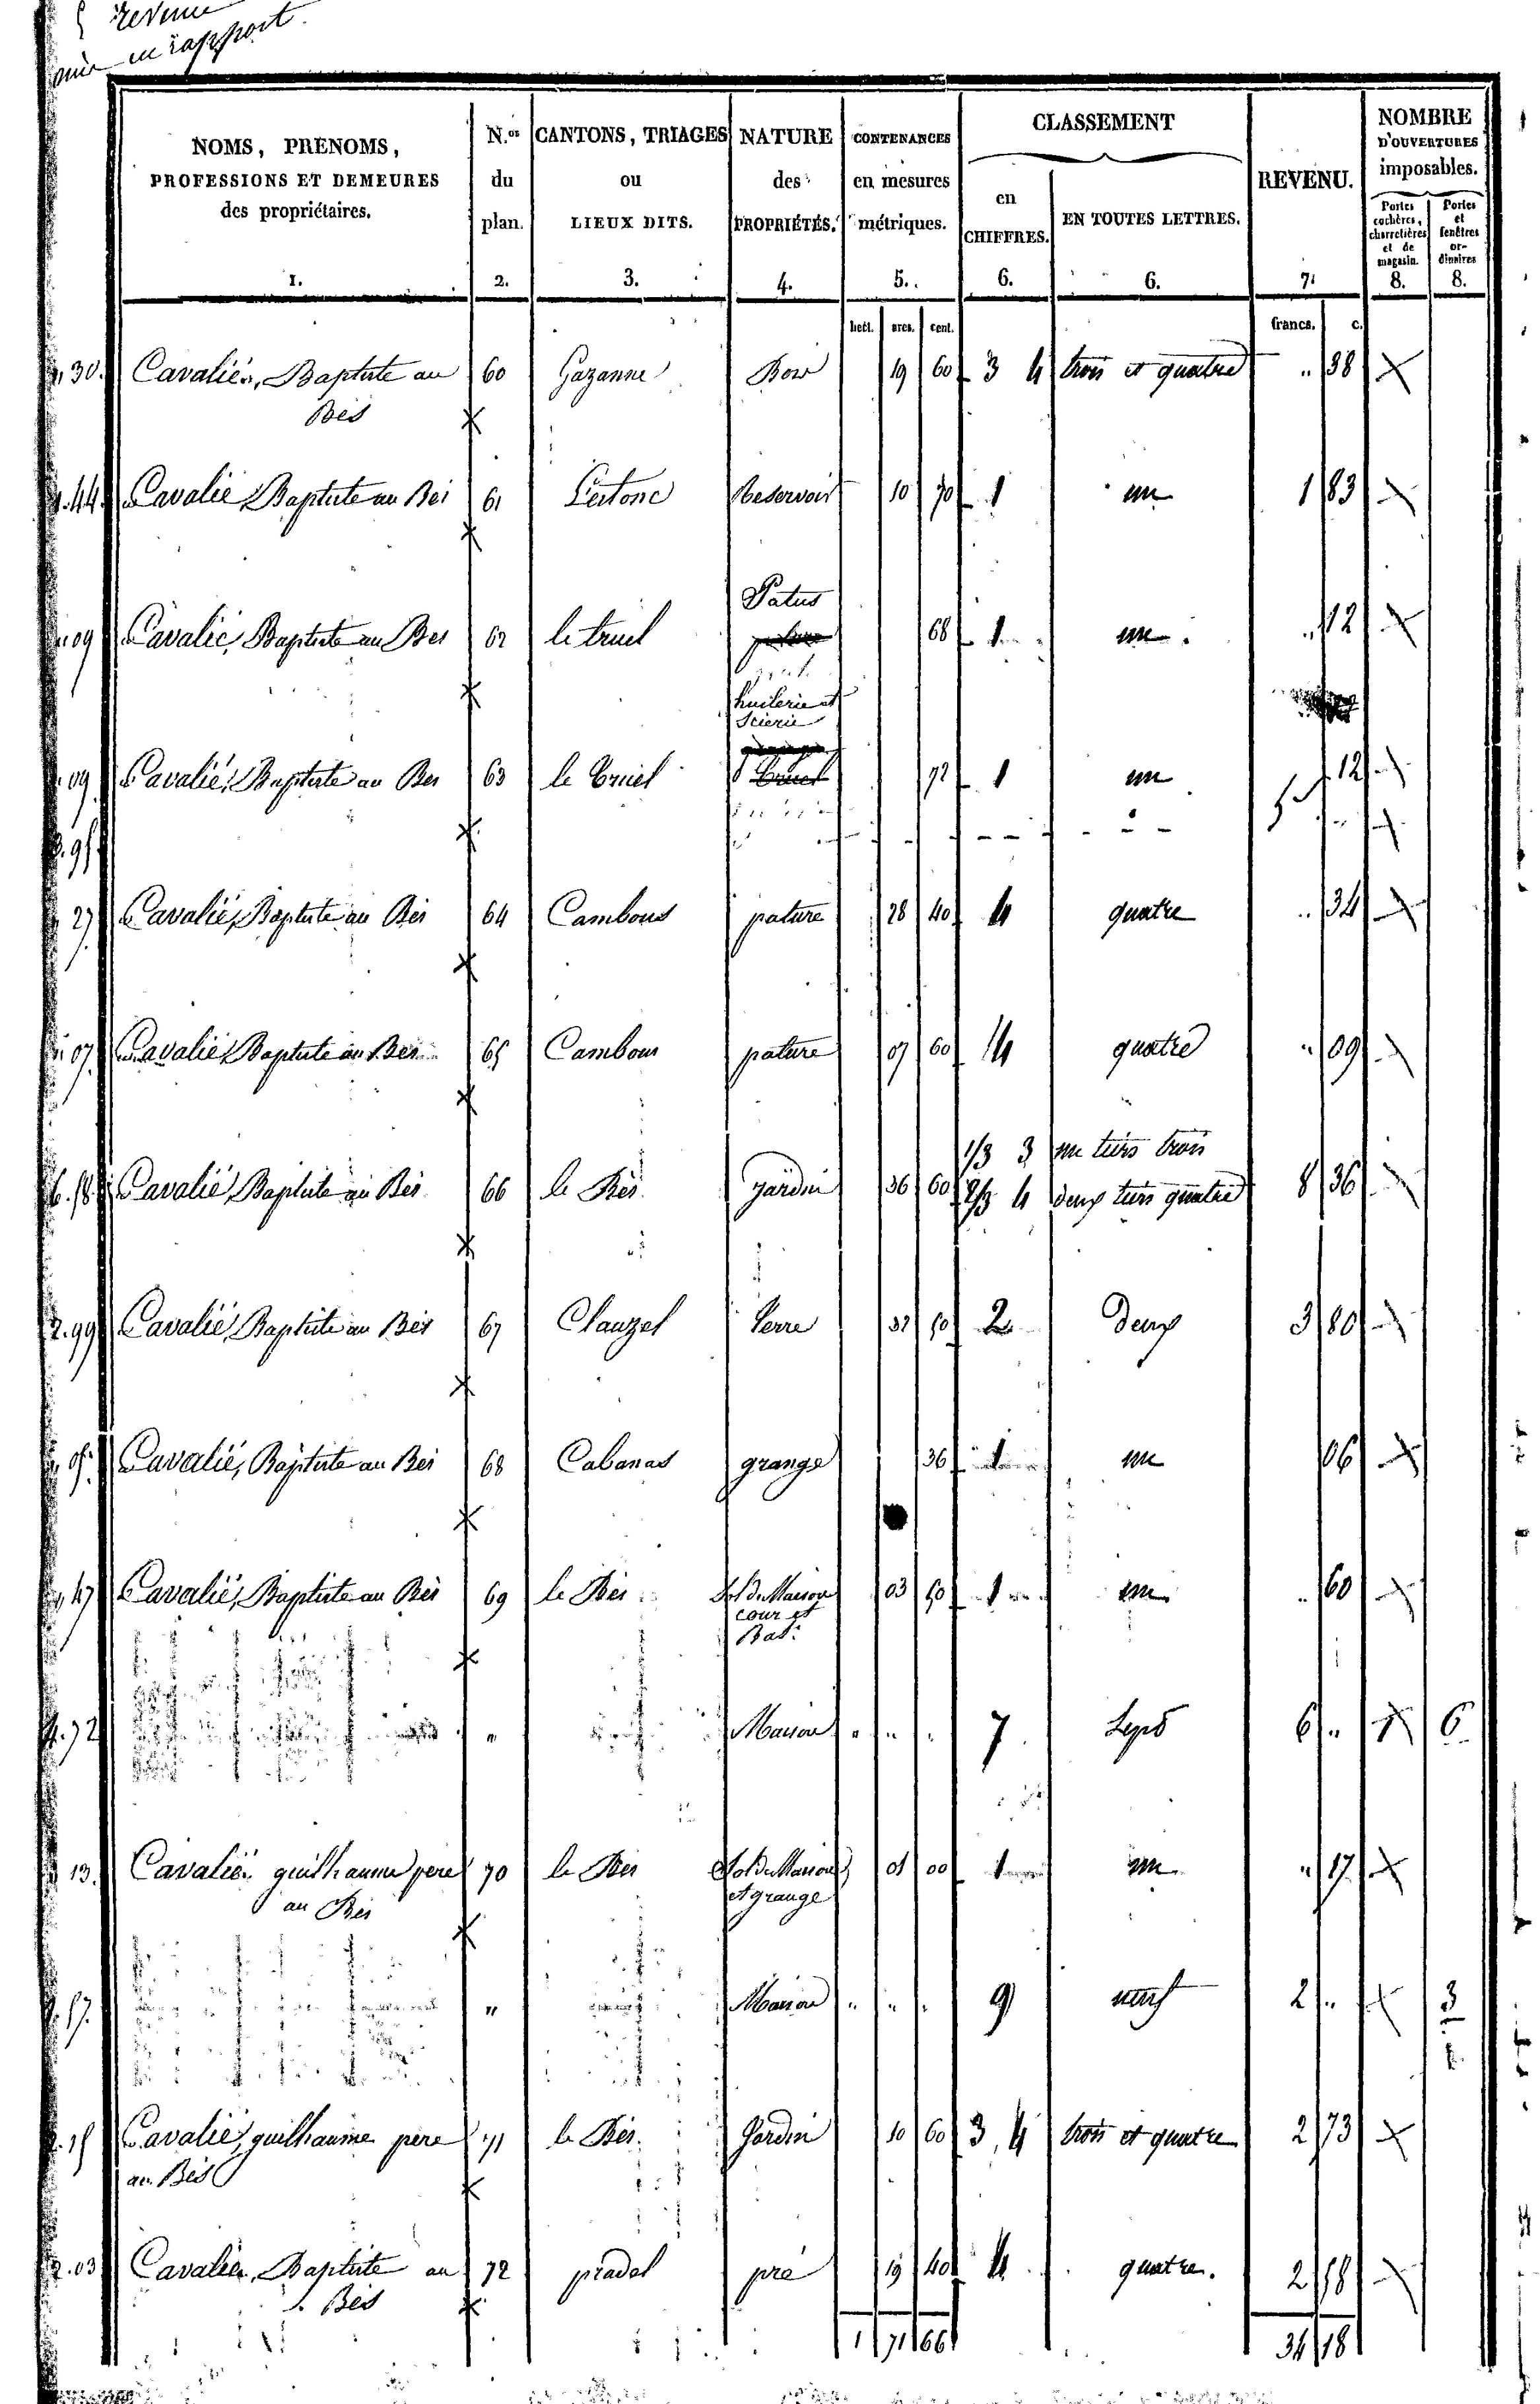 revenu
en rapport.
NOMS, PRENOMS,
PROFESSIONS ET DEMEURES
des propriétaires.
1.
N.os
du
plan.
2.
CANTONS, TRIAGES
ou
LIEUX DITS.
3.
NATURE
des
PROPRIÉTÉS.
4.
CONTENANCES
en mesures
métriques.
5.
CLASSEMENT
en
CHIFFRES.
6.
EN TOUTES LETTRES.
6.
REVENU.
7.
NOMBRE
D'OUVERTURES
imposables.
Portes
cochères,
charretières
et de
magasin.
8.
Portes
et
fenêtres
or-
dinaires
8.
hect. ares. cent. francs. c.
30. Cavalié, Baptiste au 60 Gazanne Bois 19 60 3 4 trois et quatre " 38
Bès
44 Cavalié Baptiste au Bès 61 Reservoir 10 70 1 un 1 83
Patus
09 Cavalié, Baptiste au Bes 62 le truel 68 1 un " 12
huilerie et
Scierie
09 Cavalié, Baptiste au Bes 63 le Truel 72 1 un 12
27 Cavalié, Baptiste au Bès 64 Cambous pature 28 40 4 quatre " 34
07 Cavalié Baptiste au Bes 65 Cambous pature 07 60 4 quatre " 09
1/3 3 un tiers trois
Cavalié Baptiste au Bès 66 le Bès jardin 36 60 2/3 4 deux tiers quatre 8 36
2.99 Cavalié Baptiste au Bès 67 Clauzel terre 32 50 2 Deux 3 80
Cavalié, Baptiste au Bès 68 Cabanas grange 36 1 un 06
47 Cavalié, Baptiste au Bès 69 le Bès Sol de Maison 03 50 1 un " 60
cour et
Bat.
72 " Maison " " " 7 Sept 6 " 6
13. Cavalié guilhaume pere 70 le Bès Sol de Maison 01 00 1 un " 17
au Bès et grange
" Maison " " " 9 neuf 2 " 3
Cavalié, guilhaume père 71 le Bès Jardin 10 60 3, 4 trois et quatre 2 73
au Bès
2.03 Cavalié, Baptiste au 72 pradel pré 19 40 4 quatre. 2 58
Bès
1 71 66 34 18